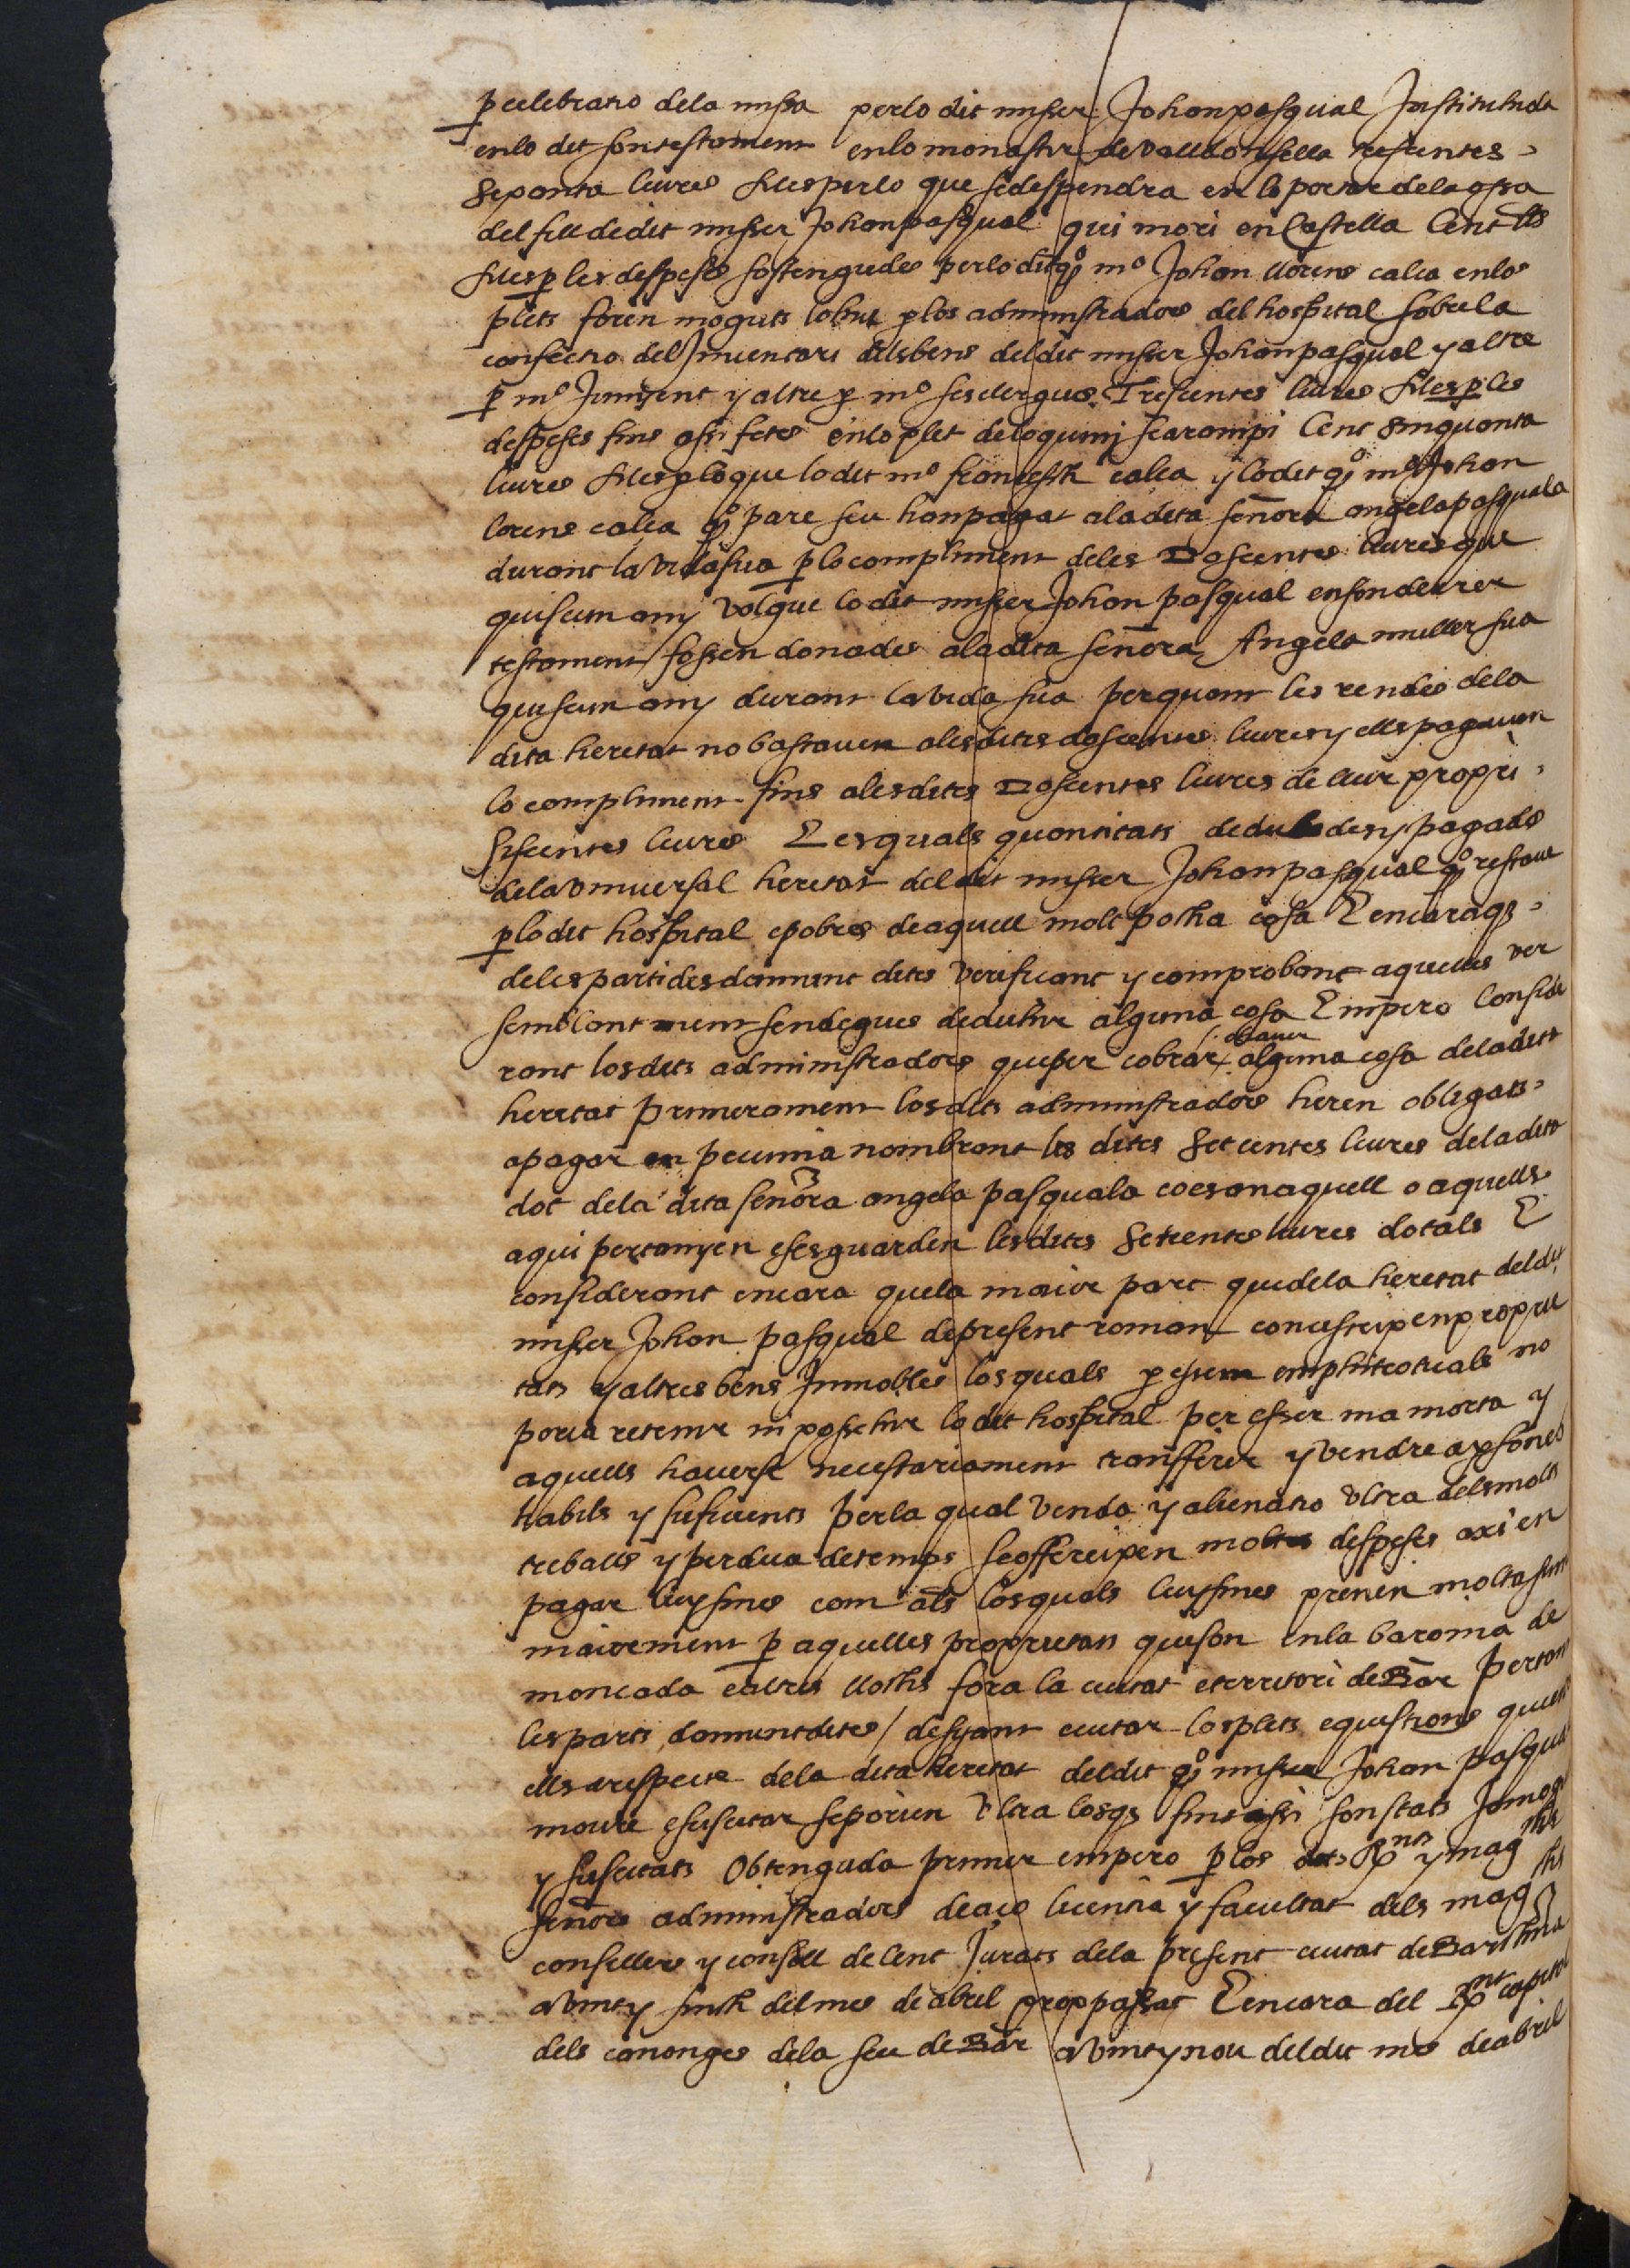 p celebratio dela missa perlo dit misser Johan pasqual Instituhida
enlo dit son testament enlo monastir de valldonsella tresentes
sexanta liures Mes perlo que se despendra en lo portar dela ossa
del fill dedit misser Johan pasqual qui mori en Castella Cent lls
Mes p les despeses sostengudes perlo dit qo mo Johan llorens calça enlos
plets foren moguts lo hu plos administradors del hospital sobre la
confectio del Inuentari dels bens deldit misser Johan pasqual y altre
p mo Junyent y altre p mo sesclergues Tresentes liures Mes p les
despeses fins assi fetes enlo plet de Cent sinquanta
liures Mes plo que lo dit mo calça y lo dit qo mo Johan
lorens calça qo pare seu han pagat ala dita señora angela pasquala
durant la vida sua plo compliment deles Doscentes liures que
quiscun any volgue lo dit misser Johan pasqual en son derrer
testament fossen donades ala dita señora Angela muller sua
quiscun any durant la vida sua per quant les rendes dela
dita heretat no bastauen ales dites doscentes liures y ells pagauen
lo compliment fins ales dites Doscentes liures de llur propri
siscentes liures Les quals quantitats deduhides y pagades
dela vniuersal heretat deldit misser Johan pasqual qo restaue
plo dit hospital e pobres de aquell molt pocha cosa E encara qs
deles partides damunt dites verificant y comprobant aquelles ver
semblantment sendegues deduhir alguna cosa Empero Conside
rant los dits administradors que per cobrar o hauer alguna cosa dela dita
heretat primerament los dits administradors heren obligats
a pagar en pecunia nombrant les dites Setcentes liures dela dita
dot dela dita señora angela pasquala ço es an aquell o aquells
a qui pertanyen e se sguarden les dites Setcentes liures dotals E
considerant encara que la maior part que dela heretat deldit
misser Johan pasqual de present roman consisteix en proprie
tats y altres bens Inmobles los quals p esser emphiteoticals no
poria retenir ni possehir lo dit hospital per esser ma morta y
aquells hauerse necessariament transfferir y vendre a psones
habils y suficients perla qual venda y alienatio vltra dels molts
treballs y perdua de temps se offereixen moltes despeses axi en
pagar lluysmes com als los quals lluysmes prenen molta sum
maiorment p aquelles proprietats que son enla baronia de
moncada e altres llochs fora la ciutat e territori de Bar Pertant
les parts damunt dites / desijant euitar los plets e questions que en
ells a respecte dela dita heretat deldit qo misser Johan pasqual
moure e suscitar se porien vltra los qs fins assi son stats Ja mogu
y suscitats Obtenguda primer empero plos dits Rnts y magchs
señors administradors de aço licentia y facultat dels magchs
consellers y consell de Cent Jurats dela present ciutat de Barchna
a vint y sinch del mes de abril prop passat E encara del Rnt capitol
dels canonges dela seu de Bar a vint y nou deldit mes de abril